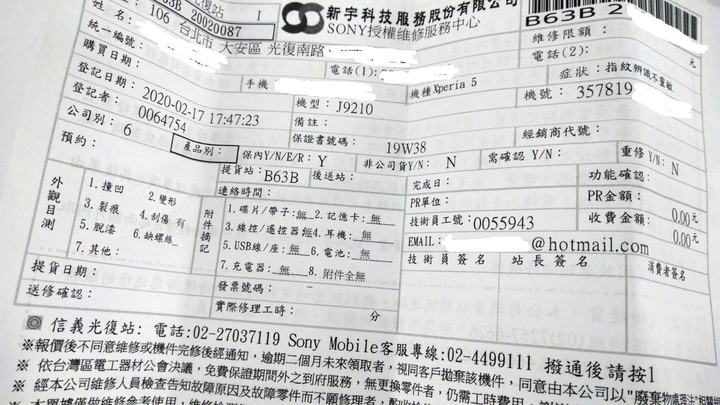 光復站 I
B63B 20020087
新宇科技服務股份有限公司
SONY授權維修服務中心
B63B 2
姓名：
106 台北市 大安區 光復南路
維修限額： 元
統一編號：
電話(1):
電話(2):
購買日期：
手機
機種Xperia 5
症狀：指紋辨識不靈敏
登記日期： 2020-02-17 17:47:23
機型： J9210
機號： 357819
登記者： 0064754
備註：
公司別： 6
產品別：
保證書號碼： 19W38
經銷商代號：
預約：
保內Y/N/E/R: Y
非公司貨Y/N: N
需確認 Y/N:
重修Y/N: N
提貨站: B63B 後送站：
完成日：
功能確認：
外觀目測
1.撞凹 2.變形
3.裂痕 4.刮傷 有
5.脫漆 6.缺螺絲
7.其他：
連絡時間：
附件摘記
1.碟片/帶子:無 2.記憶卡:無
3.線控/遙控器:無 4.耳機:無
5.USB線/座:無 6.電池:無
7.充電器:無 8.附件全無
PR單位:
PR金額：
0.00元
技術員工號： 0055943
收費金額：
0.00元
EMAIL: @hotmail.com
提貨日期：
發票號碼：
技術員簽名
站長簽名
消費者簽名
送修確認：
實際修理工時： 分
信義光復站: 電話:02-27037119 Sony Mobile客服專線:02-4499111 撥通後請按1
※報價後不同意維修或機件完修後經通知，逾期二個月未來領取者，視同客戶拋棄該機件，同意由本公司以"廢棄物處理法"
※ 依台灣區電工器材公會決議，免費保證期間外之到府服務，無更換零件者，仍需工時費用
※ 經本公司維修人員檢查告知故障原因及故障零件而不願修理者，